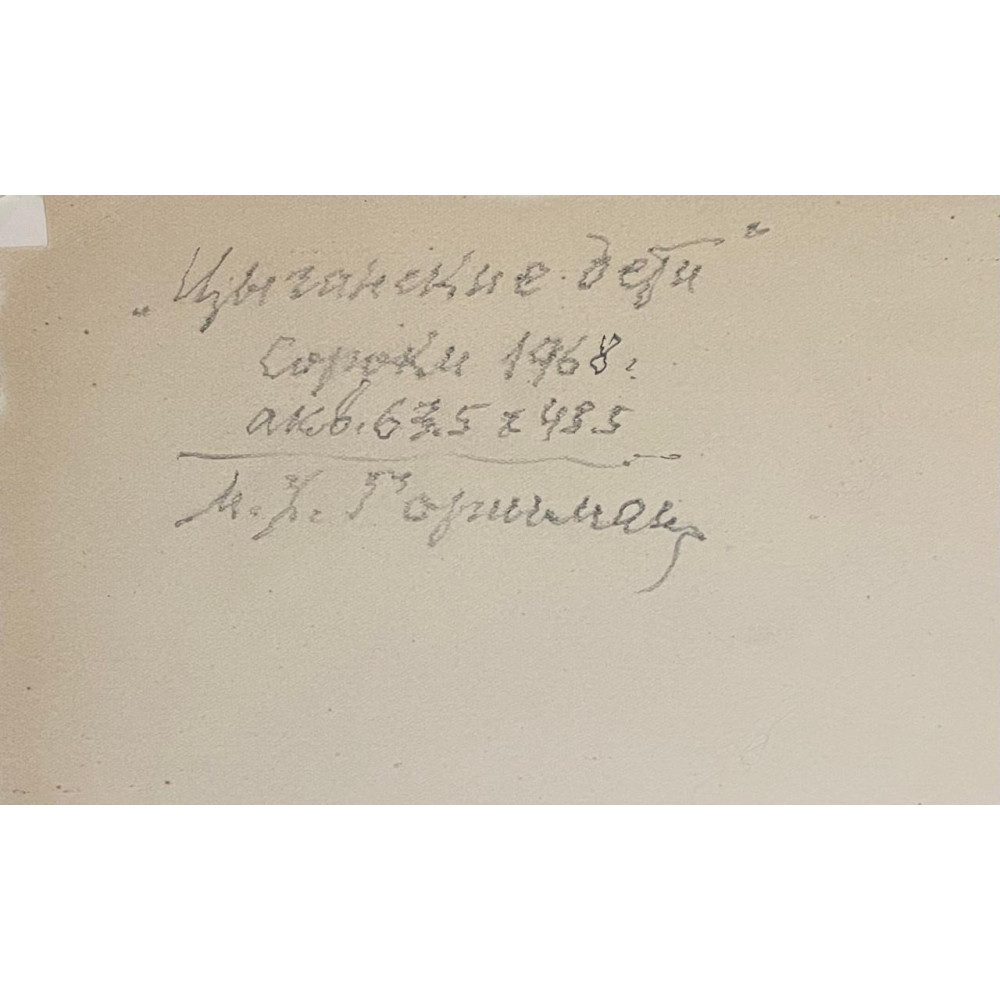 „Цыганские дети"
Сороки 1968г.
акв. 63.5 x 48.5
М.Х. Горшман